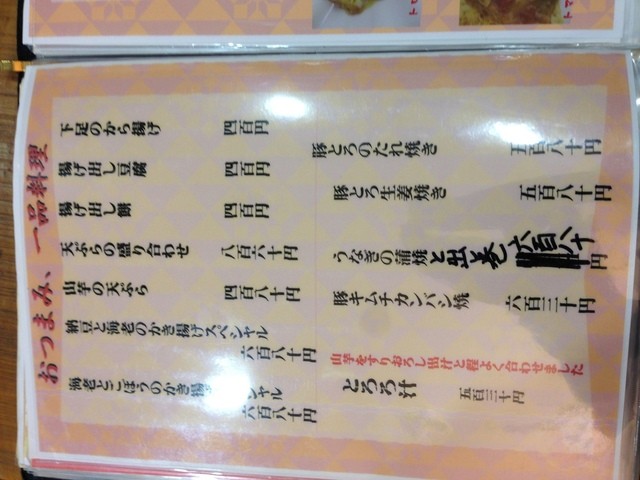 おつまみ、一品料理
下足のから揚げ 四百円
揚げ出し豆腐 四百円
揚げ出し餅 四百円
天ぷらの盛り合わせ 八百六十円
山芋の天ぷら 四百八十円
納豆と海老のかき揚げスペシャル
六百八十円
海老とごぼうのかき揚 シャル
六百八十円
豚とろのたれ焼き 五百八十円
豚とろ生姜焼き 五百八十円
うなぎの蒲焼と出し巻 六百八十円
豚キムチカンバシ焼 六百三十円
山芋をすりおろし出汁と程よく合わせました
とろろ汁 五百三十円
トマ